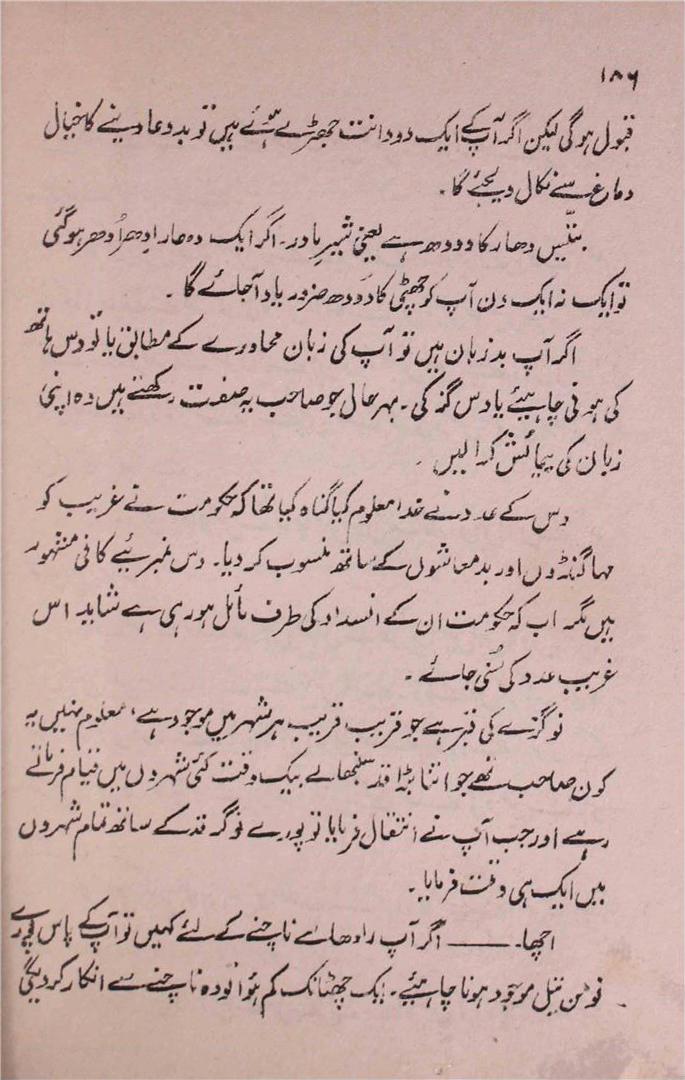 ۱۸۶
قبول ہوگی لیکن اگر آپ کے ایک دو دانت جھڑے ہوئے ہیں تو بد دعا دینے کا خیال
دماغ سے نکال دیجئے گا۔
بتیس دھار کا دودھ ہے یعنی شیرِ مادر۔ اگر ایک دھار ادھر اُدھر ہو گئی
تو ایک نہ ایک دن آپ کو چھٹی کا دودھ ضرور یاد آجائے گا۔
اگر آپ بد زبان ہیں تو آپ کی زبان محاورے کے مطابق یا تو دس ہاتھ
کی ہونی چاہیئے یا دس گز کی۔ بہر حال جو صاحب یہ صفت رکھتے ہیں وہ اپنی
زبان کی پیمائش کرالیں۔
دس کے عدد نے خدا معلوم کیا گناہ کیا تھا کہ حکومت نے غریب کو
مہا گنڈوں اور بدمعاشوں کے ساتھ منسوب کر دیا۔ دس نمبریئے کافی مشہور
ہیں مگر اب کہ حکومت ان کے انسداد کی طرف مائل ہو رہی ہے شاید اس
غریب عدد کی سُنی جائے۔
نو گزے کی قبر ہے جو قریب قریب ہر شہر میں موجود ہے، معلوم نہیں یہ
کون صاحب تھے جو اتنا بڑا قد سنبھالے بیک وقت کئی شہروں میں قیام فرماتے
رہے اور جب آپ نے انتقال فرمایا تو پورے نو گز قد کے ساتھ تمام شہروں
میں ایک ہی وقت فرمایا۔
اچھا۔ ——— اگر آپ رادھا سے ناچنے کے لئے کہیں تو آپ کے پاس پورے
نو من تیل موجود ہونا چاہیئے۔ ایک چھٹانک کم ہوا تو وہ ناچنے سے انکار کر دیگی